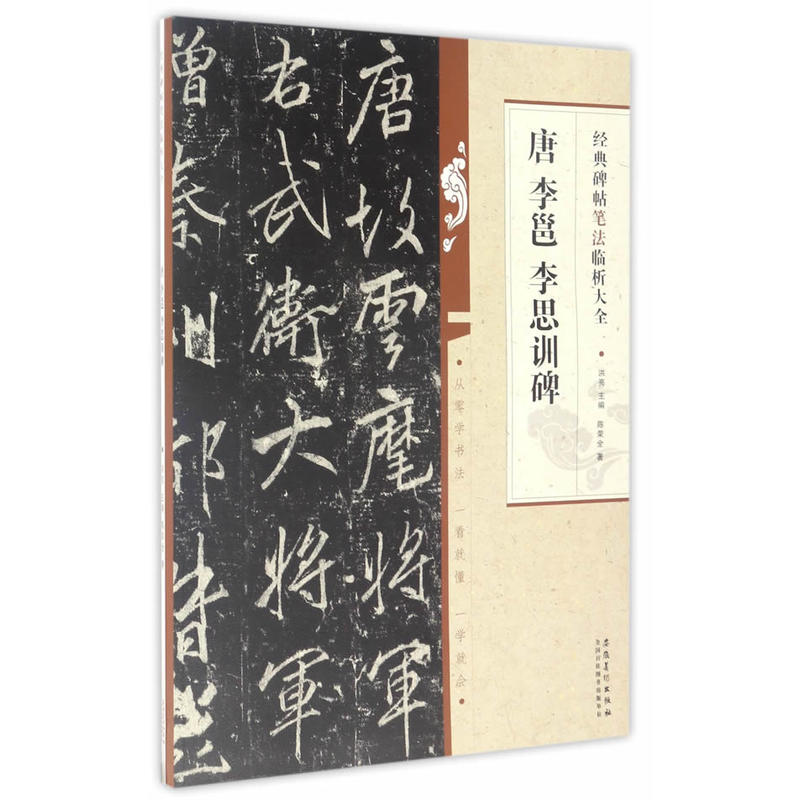 经典碑帖笔法临析大全
洪亮 主编 陈荣全 著
唐 李邕 李思训碑
从零学书法 一看就懂 一学就会
唐故雲麾將軍
右武衛大將軍
安徽美术出版社
全国百佳图书出版单位